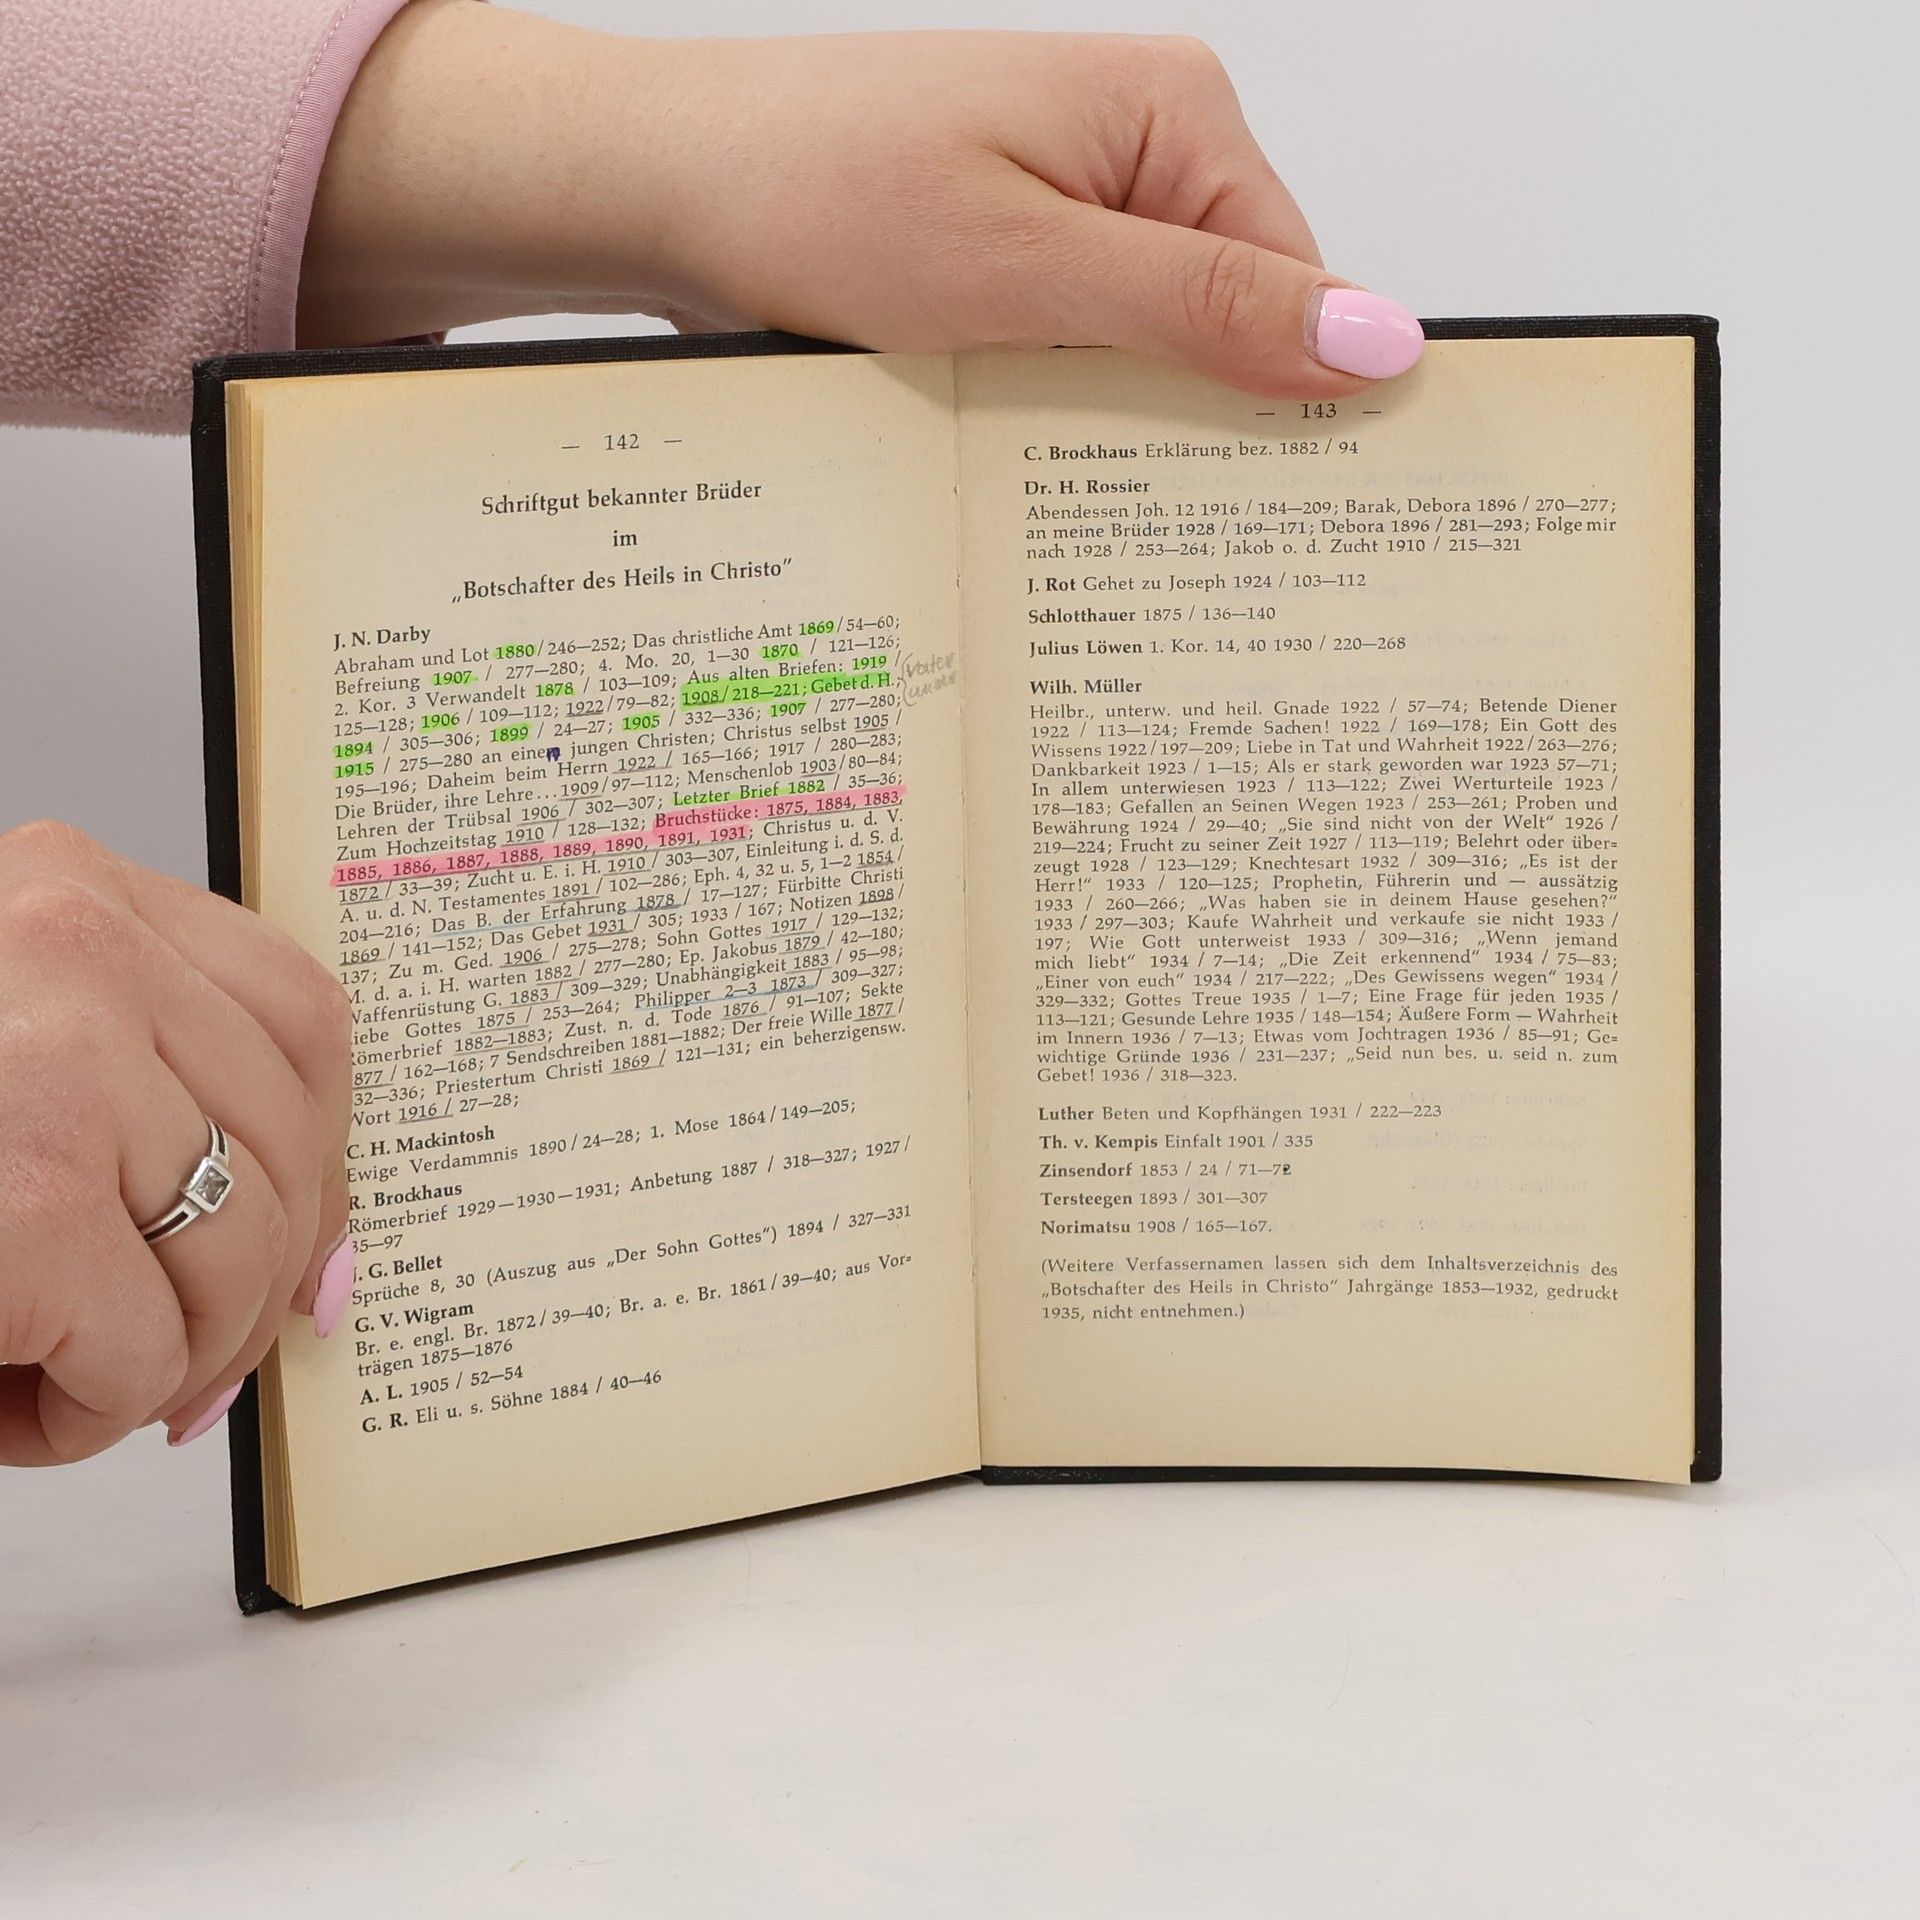 — 142 —
Schriftgut bekannter Brüder
im
„Botschafter des Heils in Christo“
J. N. Darby
Abraham und Lot 1880/246—252; Das christliche Amt 1869/54—60;
Befreiung 1907 / 277—280; 4. Mo. 20, 1—30 1870 / 121—126;
2. Kor. 3 Verwandelt 1878 / 103—109; Aus alten Briefen: 1919 /
125—128; 1906 / 109—112; 1922/79—82; 1908/218—221; Gebet d. H.;
1894 / 305—306; 1899 / 24—27; 1905 / 332—336; 1907 / 277—280;
1915 / 275—280 an einen jungen Christen; Christus selbst 1905 /
195—196; Daheim beim Herrn 1922 / 165—166; 1917 / 280—283;
Die Brüder, ihre Lehre... 1909/97—112; Menschenlob 1903/80—84;
Lehren der Trübsal 1906 / 302—307; Letzter Brief 1882 / 35—36;
Zum Hochzeitstag 1910 / 128—132; Bruchstücke: 1875, 1884, 1883,
1885, 1886, 1887, 1888, 1889, 1890, 1891, 1931; Christus u. d. V.
1872 / 33—39; Zucht u. E. i. H. 1910 / 303—307, Einleitung i. d. S. d.
A. u. d. N. Testamentes 1891 / 102—286; Eph. 4, 32 u. 5, 1—2 1854 /
204—216; Das B. der Erfahrung 1878 / 17—127; Fürbitte Christi
1869 / 141—152; Das Gebet 1931 / 305; 1933 / 167; Notizen 1898 /
137; Zu m. Ged. 1906 / 275—278; Sohn Gottes 1917 / 129—132;
M. d. a. i. H. warten 1882 / 277—280; Ep. Jakobus 1879 / 42—180;
Waffenrüstung G. 1883 / 309—329; Unabhängigkeit 1883 / 95—98;
iebe Gottes 1875 / 253—264; Philipper 2—3 1873 / 309—327;
ömerbrief 1882—1883; Zust. n. d. Tode 1876 / 91—107; Sekte
877 / 162—168; 7 Sendschreiben 1881—1882; Der freie Wille 1877 /
32—336; Priestertum Christi 1869 / 121—131; ein beherzigensw.
Wort 1916 / 27—28;
C. H. Mackintosh
Ewige Verdammnis 1890/24—28; 1. Mose 1864/149—205;
R. Brockhaus
Römerbrief 1929—1930—1931; Anbetung 1887 / 318—327; 1927 /
85—97
J. G. Bellet
Sprüche 8, 30 (Auszug aus „Der Sohn Gottes“) 1894 / 327—331
G. V. Wigram
Br. e. engl. Br. 1872/39—40; Br. a. e. Br. 1861/39—40; aus Vor=
trägen 1875—1876
A. L. 1905 / 52—54
G. R. Eli u. s. Söhne 1884 / 40—46
— 143 —
C. Brockhaus Erklärung bez. 1882 / 94
Dr. H. Rossier
Abendessen Joh. 12 1916 / 184—209; Barak, Debora 1896 / 270—277;
an meine Brüder 1928 / 169—171; Debora 1896 / 281—293; Folge mir
nach 1928 / 253—264; Jakob o. d. Zucht 1910 / 215—321
J. Rot Gehet zu Joseph 1924 / 103—112
Schlotthauer 1875 / 136—140
Julius Löwen 1. Kor. 14, 40 1930 / 220—268
Wilh. Müller
Heilbr., unterw. und heil. Gnade 1922 / 57—74; Betende Diener
1922 / 113—124; Fremde Sachen! 1922 / 169—178; Ein Gott des
Wissens 1922/197—209; Liebe in Tat und Wahrheit 1922/263—276;
Dankbarkeit 1923 / 1—15; Als er stark geworden war 1923 57—71;
In allem unterwiesen 1923 / 113—122; Zwei Werturteile 1923 /
178—183; Gefallen an Seinen Wegen 1923 / 253—261; Proben und
Bewährung 1924 / 29—40; „Sie sind nicht von der Welt“ 1926 /
219—224; Frucht zu seiner Zeit 1927 / 113—119; Belehrt oder über=
zeugt 1928 / 123—129; Knechtesart 1932 / 309—316; „Es ist der
Herr!“ 1933 / 120—125; Prophetin, Führerin und — aussätzig
1933 / 260—266; „Was haben sie in deinem Hause gesehen?“
1933 / 297—303; Kaufe Wahrheit und verkaufe sie nicht 1933 /
197; Wie Gott unterweist 1933 / 309—316; „Wenn jemand
mich liebt“ 1934 / 7—14; „Die Zeit erkennend“ 1934 / 75—83;
„Einer von euch“ 1934 / 217—222; „Des Gewissens wegen“ 1934 /
329—332; Gottes Treue 1935 / 1—7; Eine Frage für jeden 1935 /
113—121; Gesunde Lehre 1935 / 148—154; Äußere Form — Wahrheit
im Innern 1936 / 7—13; Etwas vom Jochtragen 1936 / 85—91; Ge=
wichtige Gründe 1936 / 231—237; „Seid nun bes. u. seid n. zum
Gebet! 1936 / 318—323.
Luther Beten und Kopfhängen 1931 / 222—223
Th. v. Kempis Einfalt 1901 / 335
Zinsendorf 1853 / 24 / 71—72
Tersteegen 1893 / 301—307
Norimatsu 1908 / 165—167.
(Weitere Verfassernamen lassen sich dem Inhaltsverzeichnis des
„Botschafter des Heils in Christo“ Jahrgänge 1853—1932, gedruckt
1935, nicht entnehmen.)